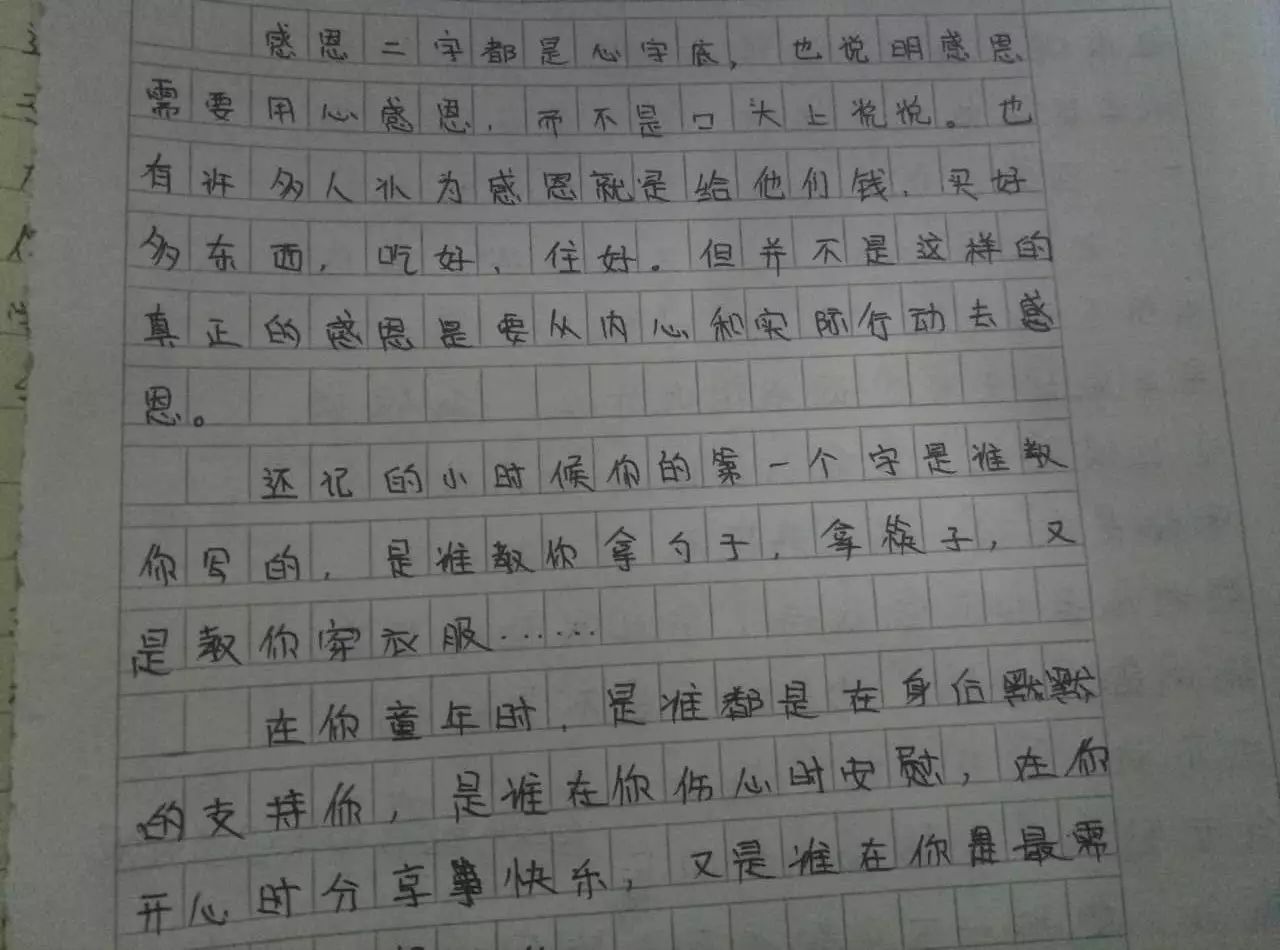 感恩二字都是心字底，也说明感恩
需要用心感恩，而不是口头上说说。也
有许多人认为感恩就是给他们钱，买好
多东西，吃好、住好。但并不是这样的
真正的感恩是要从内心和实际行动去感
恩。
还记的小时候你的第一个字是谁教
你写的，是谁教你拿勺子，拿筷子，又
是教你穿衣服……
在你童年时，是谁都是在身后默默
的支持你，是谁在你伤心时安慰，在你
开心时分享快乐，又是谁在你是最需